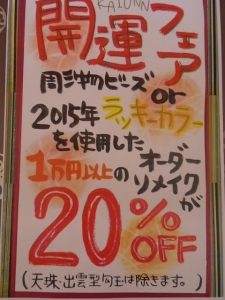 KAIUNN
開運フェア
周沖のビーズor
2015年ラッキーカラー
を使用した
1万円以上のオーダー
リメイクが
20%OFF
(天珠・出雲型勾玉は除きます。)